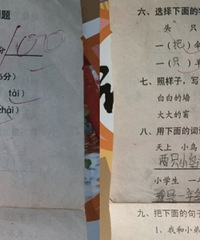 题
100
分)
tài)
zhài)
六、选择下面的
头 只
一(把)伞
一(只)
七、照样子,写
白白的墙
大大的窗
八、用下面的词
天上 小鸟
两只小鸟
小学生 一
九、把下面的句子
1、我和小弟